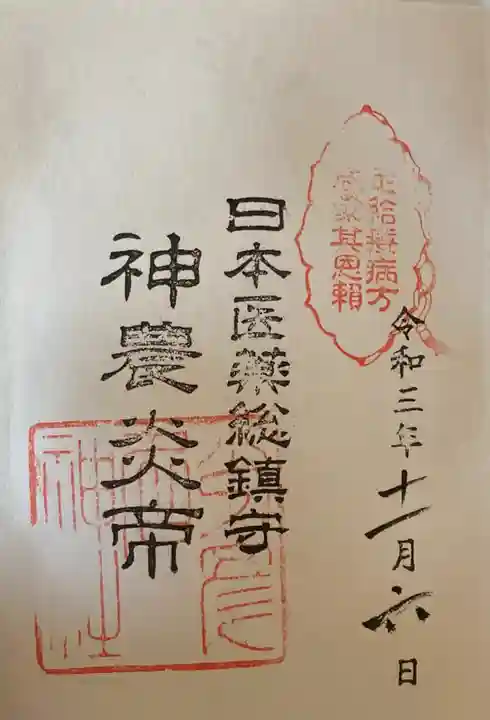 令和三年十一月六日
療病方
其恩頼
日本医薬総鎮守
神農炎帝
神社